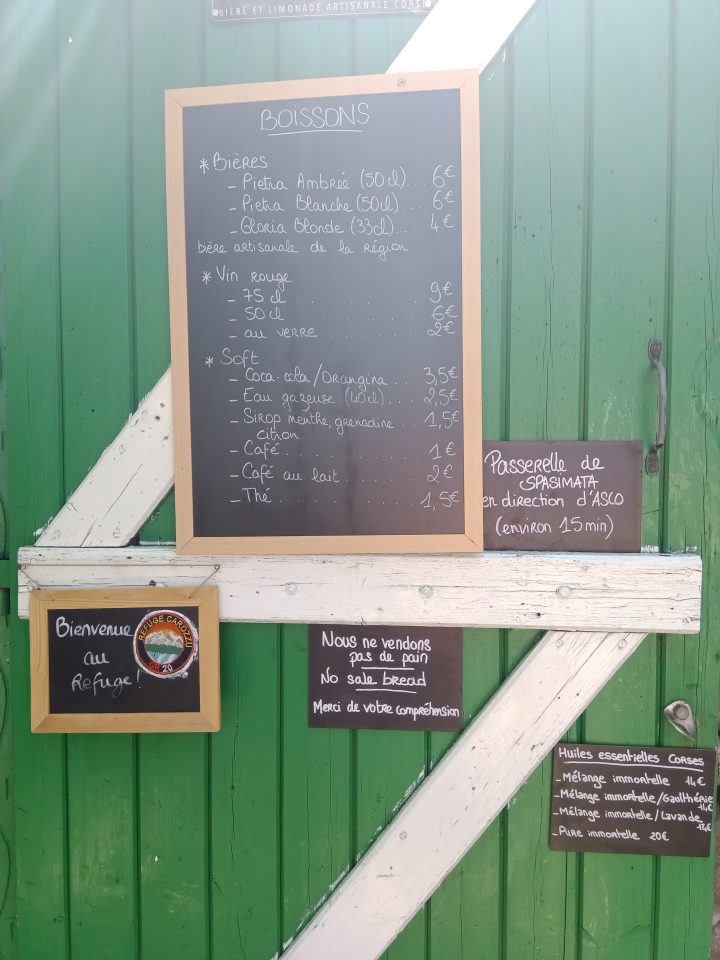 BIÈRE ET LIMONADE ARTISANALE CORSE
BOISSONS
* BIÈRES
- Pietra Ambrée (50cl)... 6€
- Pietra Blanche (50cl)... 6€
- Gloria Blonde (33cl)... 4€
bière artisanale de la région
* Vin rouge
- 75 cl .......... 9€
- 50 cl .......... 6€
- au verre ....... 2€
* Soft
- Coca-cola/Orangina ... 3,5€
- Eau gazeuse (40cl) .... 2,5€
- Sirop menthe, grenadine . 1,5€
citron
- Café ........... 1€
- Café au lait ....... 2€
- Thé ............ 1,5€
Passerelle de
SPASIMATA
en direction d'ASCO
(environ 15 min)
Bienvenue
au
Refuge !
REFUGE CAROZZU
GR 20
Nous ne vendons
pas de pain
No sale bread
Merci de votre compréhension
Huiles essentielles CORSES
- Mélange immortelle 14€
- Mélange immortelle/Gaulthérie
14€
- Mélange immortelle/Lavande
14€
- Pure immortelle 20€